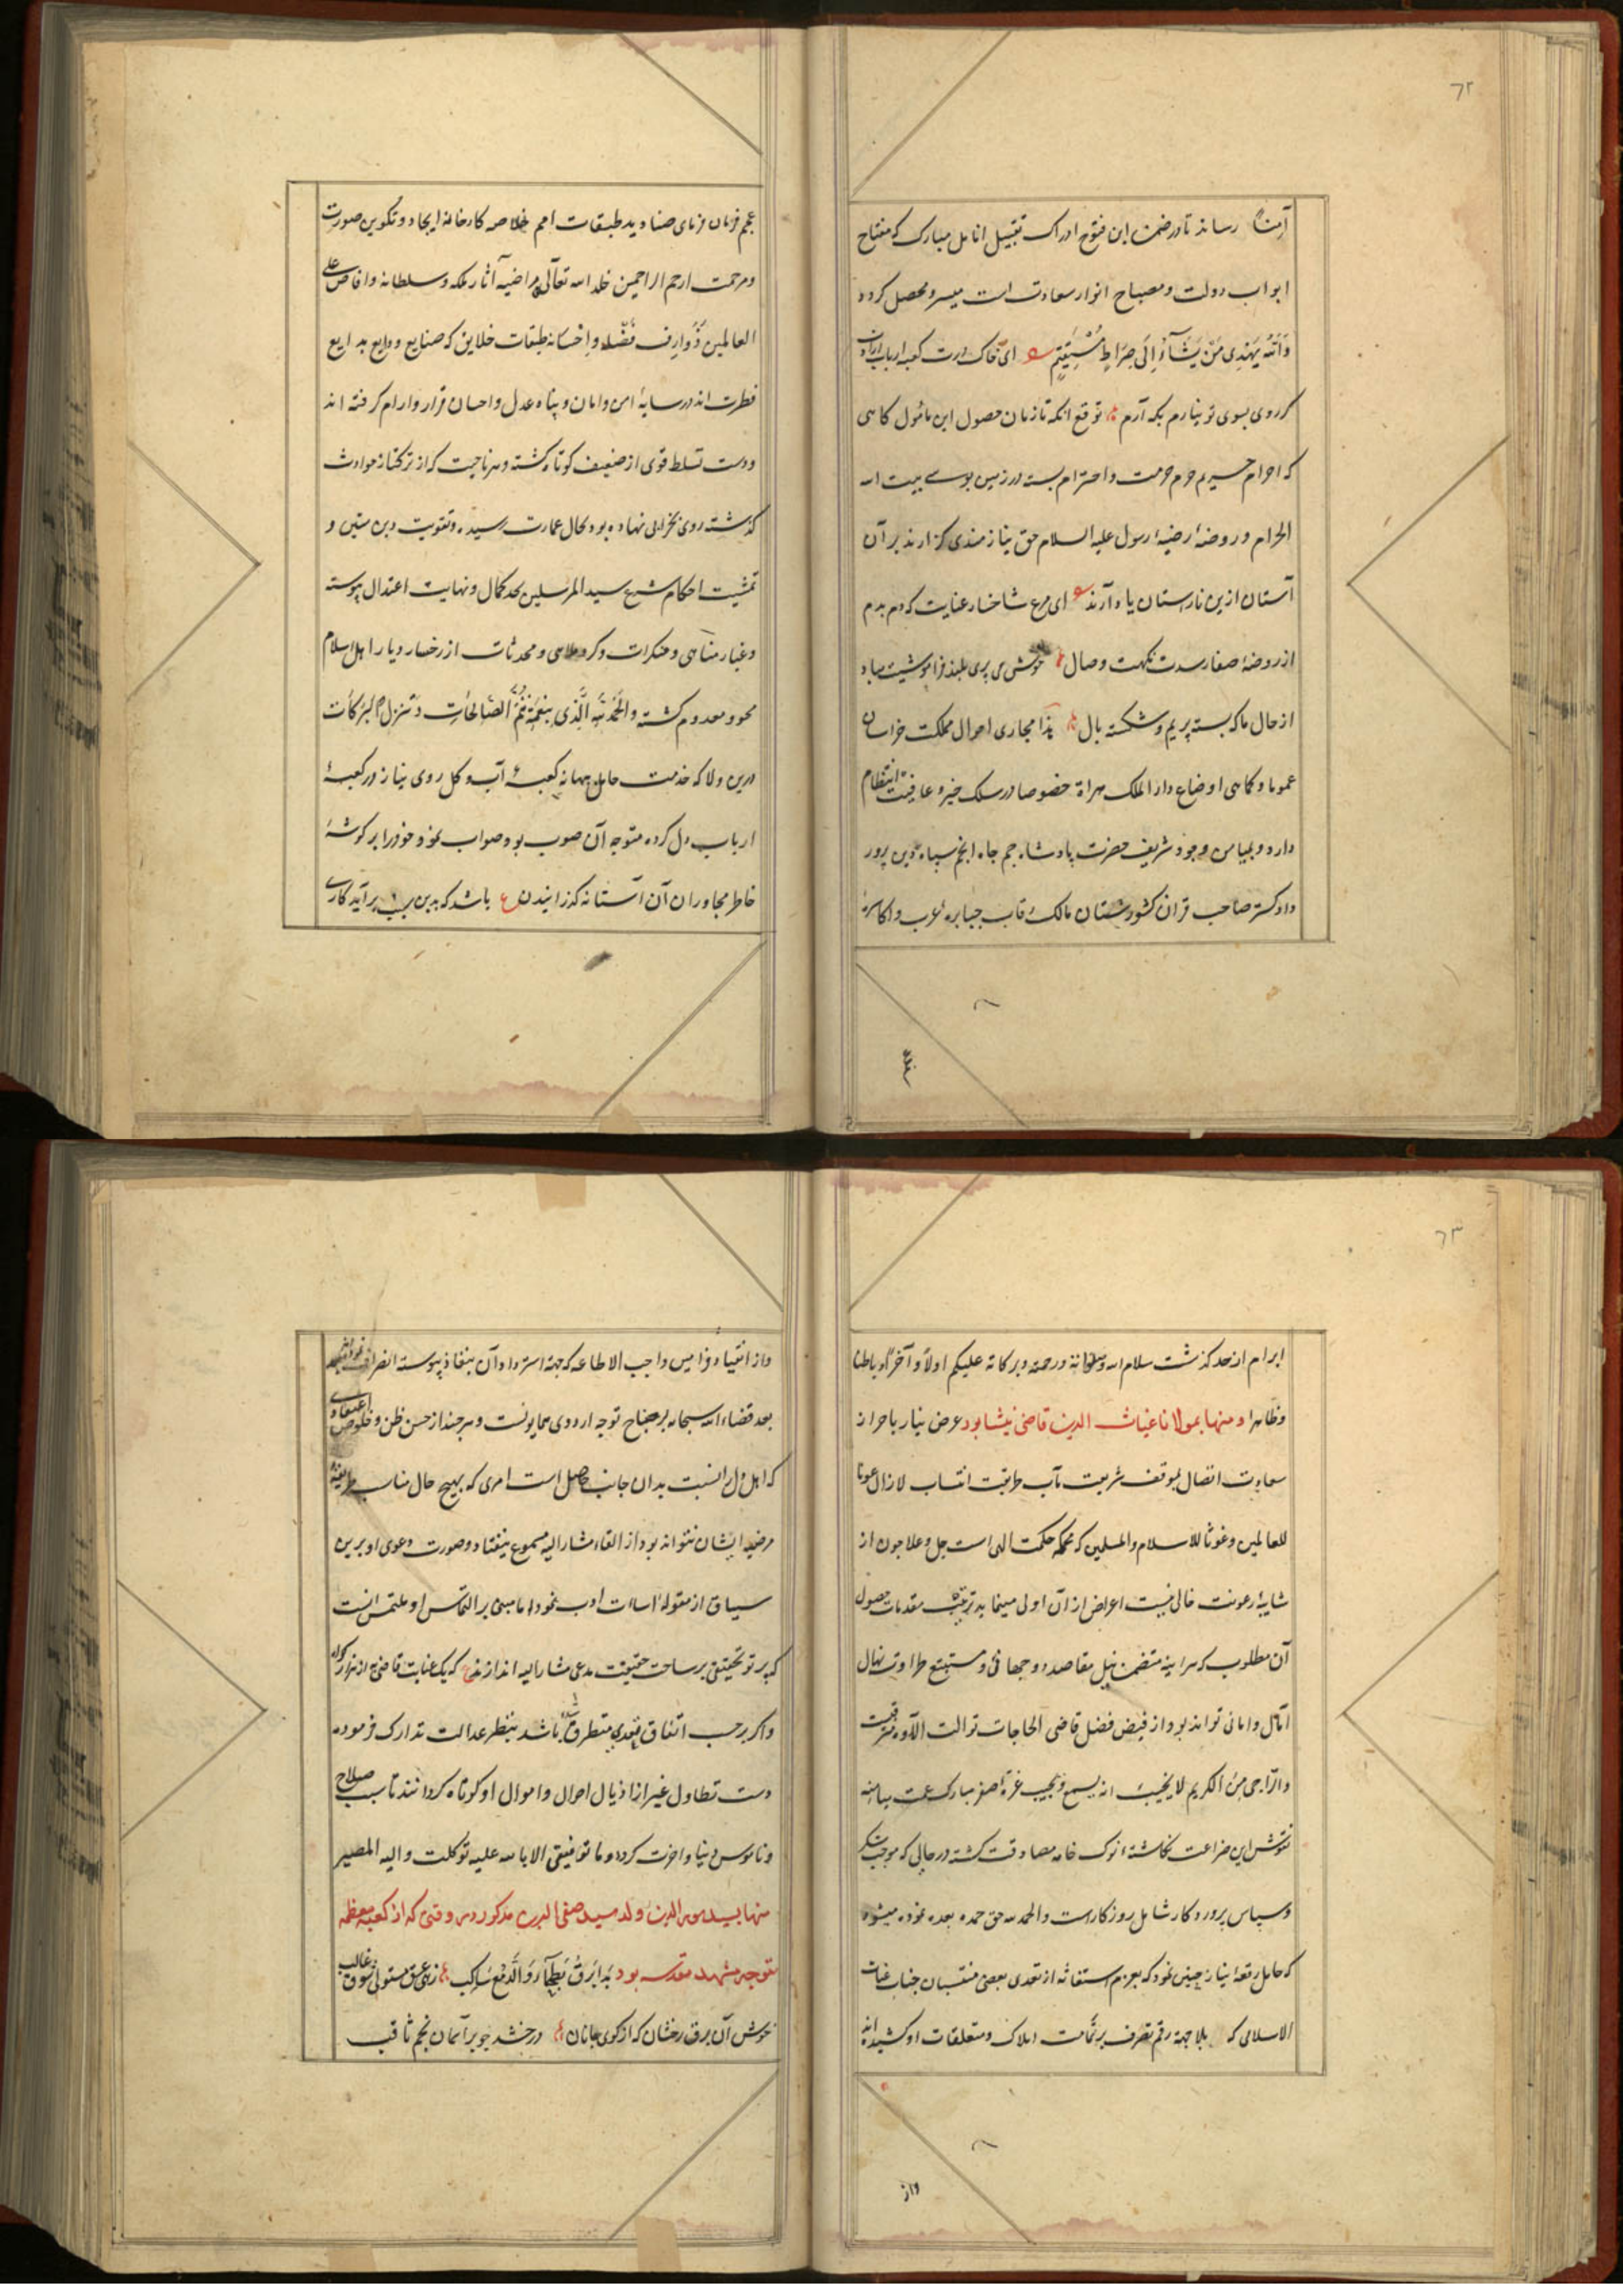 ٦٢
آمناً رساند تا در ضمن این فتوح ادراک تقبیل انامل مبارک که مفتاح
ابواب دولت و مصباح انوار سعادت است میسر و محصل گردد
وَاللّه یَهْدِی مَنْ یَشَآءُ اِلَی صِرَاطٍ مُسْتَقِیمٍ ای خاک درت کعبه ارباب ارادت
گر روی بسوی تو نیارم بکه آرم توقع آنکه تا زمان حصول این مأمول گاهی
که احرام حریم حرم حرمت و احترام بسته در زمین بوسی بیت الله
الحرام و روضهٔ رضیهٔ رسول علیه السلام حق نیازمندی گزارند بر آن
آستان ازین نارستان یاد آرند ای مرغ شاخسار عنایت که دم بدم
از روضهٔ صفا رسدت نکهت وصال خوش می پری بلند فراموشیت مباد
از حال ما که بسته پریم و شکسته بال هذا مجاری احوال مملکت خراسان
عموما و کاهی اوضاع دار الملک هراة خصوصا در سلک خیر و عافیت انتظام
دارد و بمیامن وجود شریف حضرت پادشاه جم جاه انجم سپاه دین پرور
دادگستر صاحب قران کشورستان مالک رقاب جبابرهٔ عرب و اکاسرهٔ
عجم
عجم فرمان فرمای صنادید طبقات امم خلاصه کارخانهٔ ایجاد و تکوین صورت
و مرحمت ارحم الراحمین خلد الله تعالی مراضیه آثار ملکه و سلطانه و افاض علی
العالمین ذَوَارِف فَضْله و اِحْسَانه طبقات خلایق که صنایع ودایع بدایع
فطرت اند در سایهٔ امن و امان و پناه عدل و احسان قرار و آرام گرفته اند
و دست تسلط قوی از ضعیف کوتاه گشته و هر ناحیت که از ترکتاز حوادث
گذشته روی بخرابی نهاده بود بحال عمارت رسیده و تقویت دین متین و
تمشیت احکام شرع سید المرسلین بحد کمال و نهایت اعتدال پیوسته
و غبار مناهی و منکرات و گرد ملاهی و محدثات از رخسار دیار اهل اسلام
محو و معدوم گشته وَالحَمْدُ لِلّهِ الَّذِی بِنِعْمَتِه تَتِمُّ الصَّالِحَات وَ تَنْزِلُ البَرَکَات
درین ولا که خدمت حامل بهانهٔ کعبهٔ آب و گل روی نیاز در کعبهٔ
ارباب دل کرده متوجه آن صوب بود صواب نمود خود را بر گوشهٔ
خاطر مجاوران آن آستانه گذرانیدن ع باشد که بدین سبب برآید کاری
٦٣
ابرام از حد گذشت سلام الله و صلواته و رحمته و برکاته علیکم اولاً و آخراً و باطنا
و ظاهرا و منها بمولانا غیاث الدین قاضی نیشابور عرض نیاز باحراز
سعادت اتصال بموقف شریعت مآب طریقت انتساب لازال عونا
للعالمین و غوثا للاسلام و المسلمین که محکمه حکمت الهی است جل و علا چون از
شایبهٔ رعونت خالی نیست اعراض از آن اولی مینماید ترتیب مقدمات حصول
آن مطلوب که هراینه متضمن نیل مقاصد دو جهانی و مستتبع طراوت نهال
آمال و امانی تواند بود از فیض فضل قاضی الحاجات توالت آلاوه مترقب
وَالرَّاجِی مِنَ الکریم لا یَخِیبُ انه یسمع و یجیب غرهٔ صفر مبارک عمت میامنه
نقوش این ضراعت نگاشتهٔ نوک خامه مصادقت گشته در حالی که موجب شکر
و سپاس پروردگار شامل روزگارست و الحمد لله حق حمده بعده نموده میشود
که حامل رقعهٔ نیاز چنین نمود که بعزم استغاثه از تعدی بعضی منتسبان جناب غیاث
الاسلامی که بلا جهة رقم تصرف بر تمامت املاک و متعلقات او کشیده اند
واز
و از انقیاد فرامین واجب الاطاعه که جهة استرداد آن بنفاذ پیوسته انصراف نموده
بعد قضاء الله سبحانه بر جناح توجه اردوی همایونست و هر چند از حسن ظن و خلوص اعتقادی
که اهل دل را نسبت بدان جانب حاصل است امری که بهیچ حال مناسب طریقهٔ
مرضیه ایشان نتواند بود از القاء مشار الیه مسموع نیفتاد و صورت دعوی او برین
سیاق از مقولهٔ اساءت ادب نمود اما مبنی بر التماس او ملتمس آنست
که پرتو تحقیق بر ساحت حقیقت مدعی مشار الیه اندازند ع که یک عنایت قاضی به از هزار گواه
و اگر بر حسب اتفاق تعدی متطرق شده باشد بنظر عدالت تدارک فرموده
دست تطاول غیر از اذیال احوال و اموال او کوتاه گردانند تا سبب صلاح
و ناموس دنیا و آخرت گردد و ما توفیقی الا بالله علیه توکلت و الیه المصیر
منها بسید الدین ولد سید صفی الدین مذکور در وقتی که از کعبه معظمه
متوجه مشهد مقدسه بود بَدَا بَرْقُ بَطْحَاءَ وَ الدَّمْعُ سَاکِب زهی عشق مستولی شوق غالب
خوش آن برق رخشان که از کوی جانان درخشد چو بر آسمان نجم ثاقب